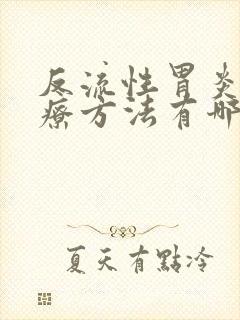 反流性胃炎
療方法有哪
夏天有點冷